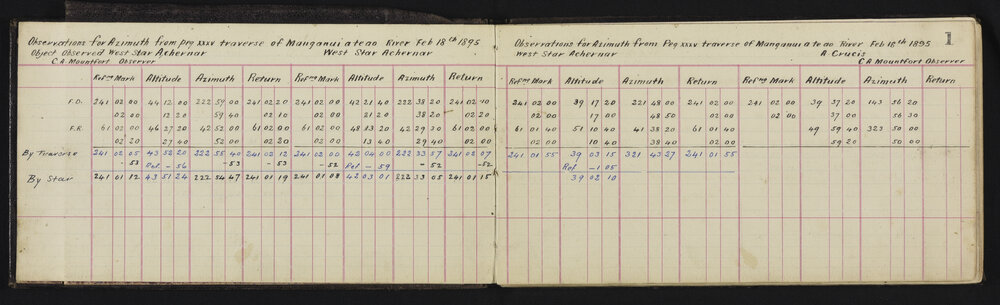 Observations for Azimuth from peg xxxv traverse of Manganui a te ao River Feb 18th 1895
Object Observed West Star Achernar West Star Achernar
C A Mountfort Observer
Refng Mark Altitude Azimuth Return Refng Mark Altitude Azimuth Return
F.L. 241 02 00 44 12 00 222 59 00 241 02 20 241 02 00 42 21 40 222 38 20 241 02 10
02 00 12 20 59 40 02 10 02 00 21 20 38 20 02 20
F.R. 61 02 00 46 27 20 42 52 00 61 02 00 61 02 00 48 13 20 42 29 20 61 02 00
02 20 27 40 52 00 02 20 02 00 13 40 29 40 02 00
By Traverse 241 02 05 43 52 20 222 55 40 241 02 12 241 02 00 42 04 00 222 33 57 241 02 07
-53 Ref -56 -53 -53 -52 Ref -59 -52 -52
By Star 241 01 12 43 51 24 222 54 47 241 01 19 241 01 08 42 03 01 222 33 05 241 01 15
1
Observations for Azimuth from Peg xxxv traverse of Manganui a te ao River Feb 18th 1895
West Star Achernar A Crucis
C A Mountfort Observer
Refng Mark Altitude Azimuth Return Refng Mark Altitude Azimuth Return
241 02 00 39 17 20 221 48 00 241 02 00 241 02 00 39 37 20 143 56 20
02 00 17 00 48 50 02 00 02 00 37 00 56 30
61 01 40 51 10 40 41 38 20 61 01 40 49 59 40 323 50 00
02 00 10 40 38 40 02 00 59 20 50 00
241 01 55 39 03 15 321 43 27 241 01 55
Ref -1 05
39 02 10